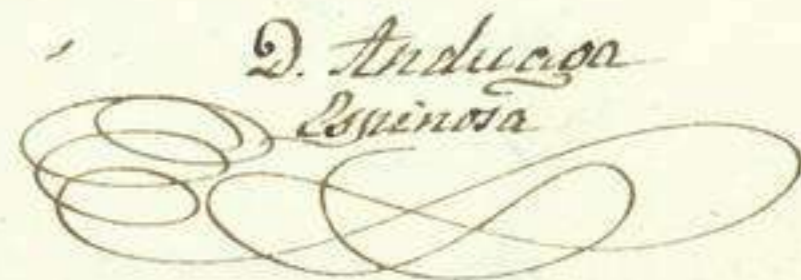 D. Anduaga
Espinosa